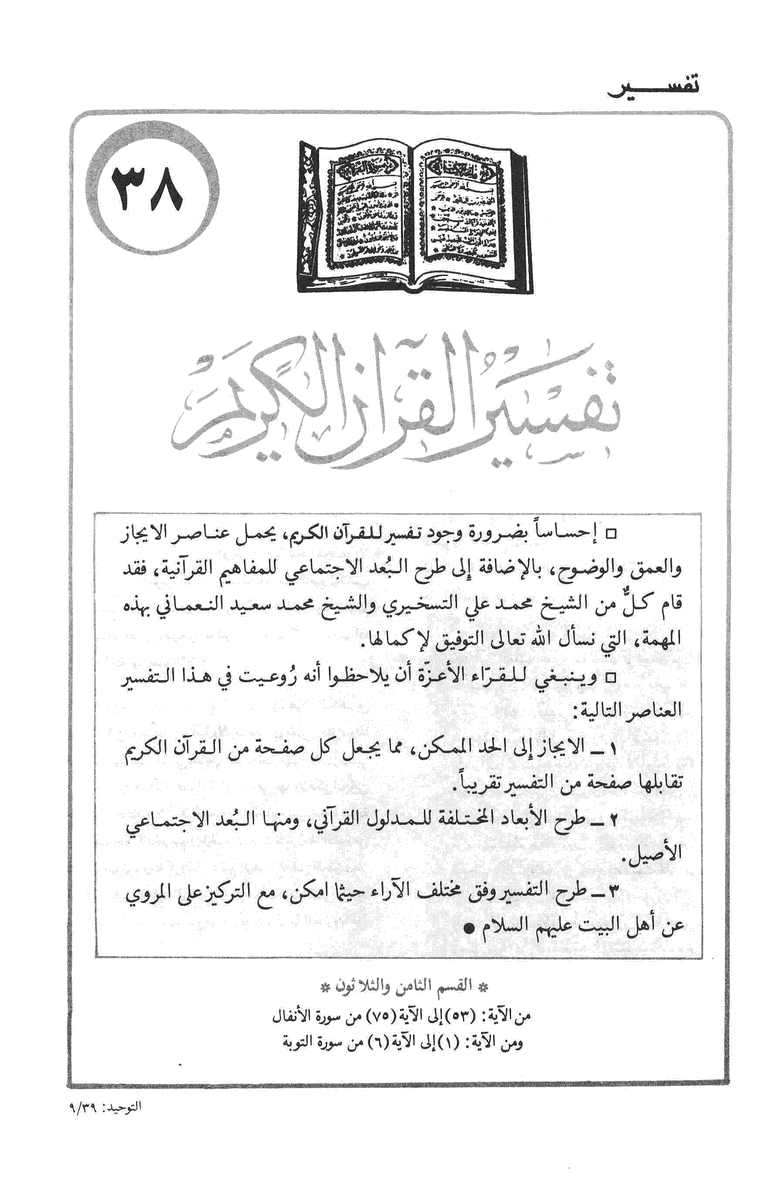 تفسير
٣٨
تفسير القرآن الكريم
□ إحساساً بضرورة وجود تفسير للقرآن الكريم، يحمل عناصر الايجاز
والعمق والوضوح، بالإضافة إلى طرح البُعد الاجتماعي للمفاهيم القرآنية، فقد
قام كلٌّ من الشيخ محمد علي التسخيري والشيخ محمد سعيد النعماني بهذه
المهمة، التي نسأل الله تعالى التوفيق لإكمالها.
□ وينبغي للقرّاء الأعزّة أن يلاحظوا أنه رُوعيت في هذا التفسير
العناصر التالية:
١ ــ الايجاز إلى الحد الممكن، مما يجعل كل صفحة من القرآن الكريم
تقابلها صفحة من التفسير تقريباً.
٢ ــ طرح الأبعاد المختلفة للمدلول القرآني، ومنها البُعد الاجتماعي
الأصيل.
٣ ــ طرح التفسير وفق مختلف الآراء حيثما امكن، مع التركيز على المروي
عن أهل البيت عليهم السلام ●
* القسم الثامن والثلاثون *
من الآية: (٥٣) إلى الآية (٧٥) من سورة الأنفال
ومن الآية: (١) إلى الآية (٦) من سورة التوبة
التوحيد: ٩/٣٩